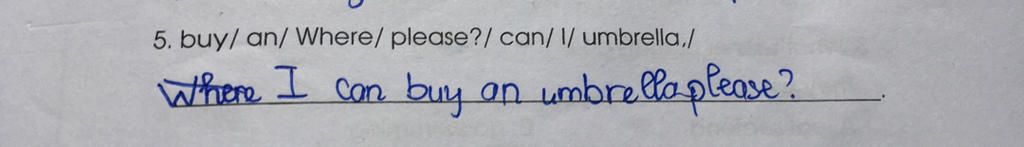 5. buy/ an/ Where/ please?/ can/ I/ umbrella,/
Where I can buy an umbrella please?